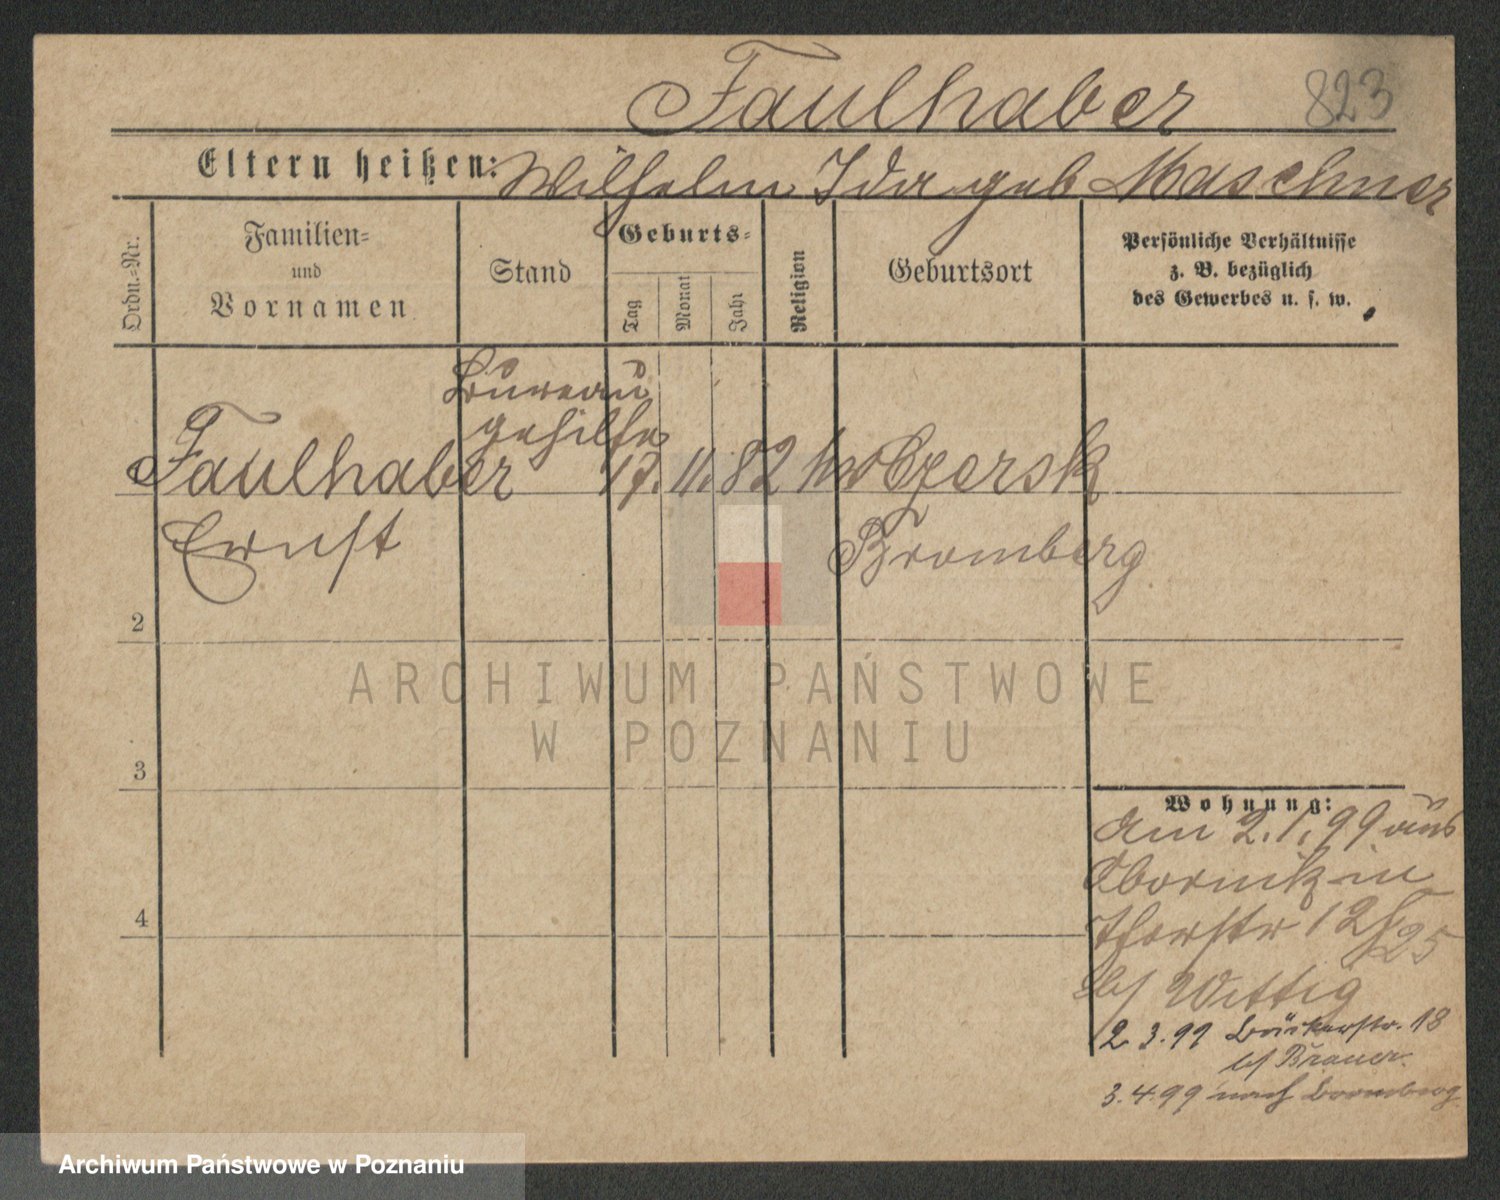 Faulhaber 823
Eltern heißen: Wilhelm Ida geb Maschner
Ordn.-Nr.
Familien-
und
Vornamen
Stand
Geburts-
Tag
Monat
Jahr
Religion
Geburtsort
Persönliche Verhältnisse
z. B. bezüglich
des Gewerbes u. s. w.
Bureau
gehilfe
Faulhaber 17. 11. 82 Czersk
Ernst Bromberg
2
3
4
Wohnung:
am 2.1.99 aus
Obornik in
Thorstr 12/25
b/ Wittig
2.3.99 Bäckerstr. 18
b/ Brauer.
3.4.99 nach Bromberg
ARCHIWUM PAŃSTWOWE
W POZNANIU
Archiwum Państwowe w Poznaniu